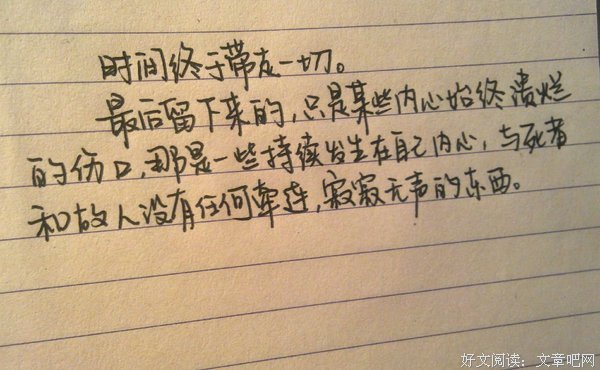 时间终于带走一切。
最后留下来的，只是某些内心始终溃烂
的伤口，那是一些持续发生在自己内心，与死者
和故人没有任何牵连，寂寂无声的东西。
好文阅读：文章吧网